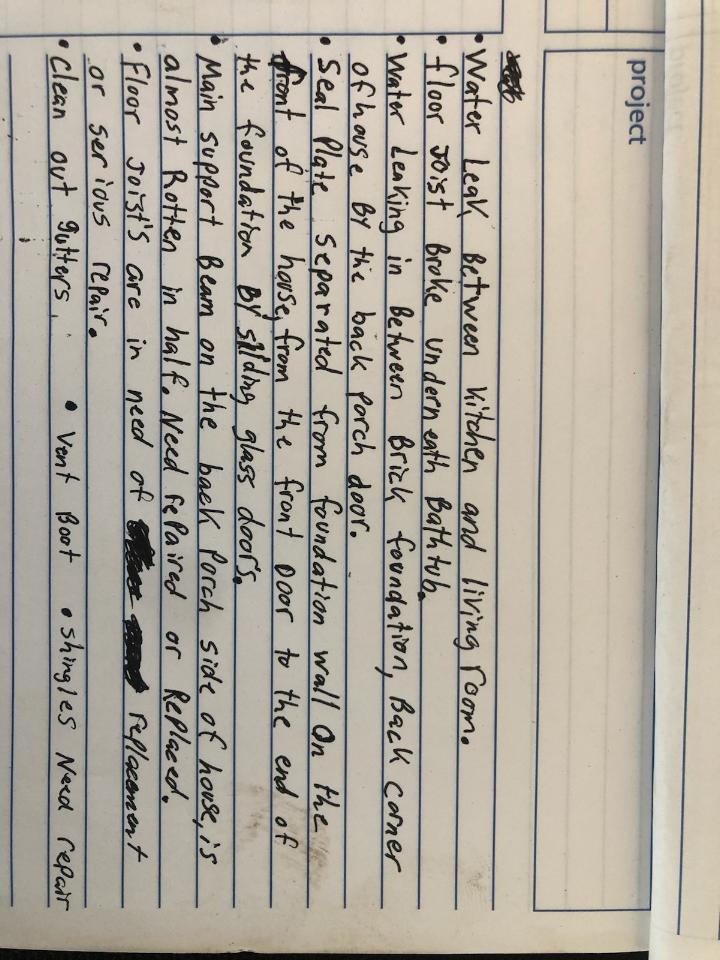 project
• Water Leak Between kitchen and living room.
• floor Joist Broke underneath Bathtub.
• Water Leaking in Between Brick foundation, Back corner
of house By the back Porch door.
• Seal Plate separated from foundation wall On the
front of the house, from the front Door to the end of
the foundation BY sliding glass door's.
• Main support Beam on the back Porch side of house, is
almost Rotten in half. Need rePaired or RePlaced.
• Floor Joist's are in need of replacement
or serious repair.
• Clean out gutters. • Vent Boot • shingles Need repair